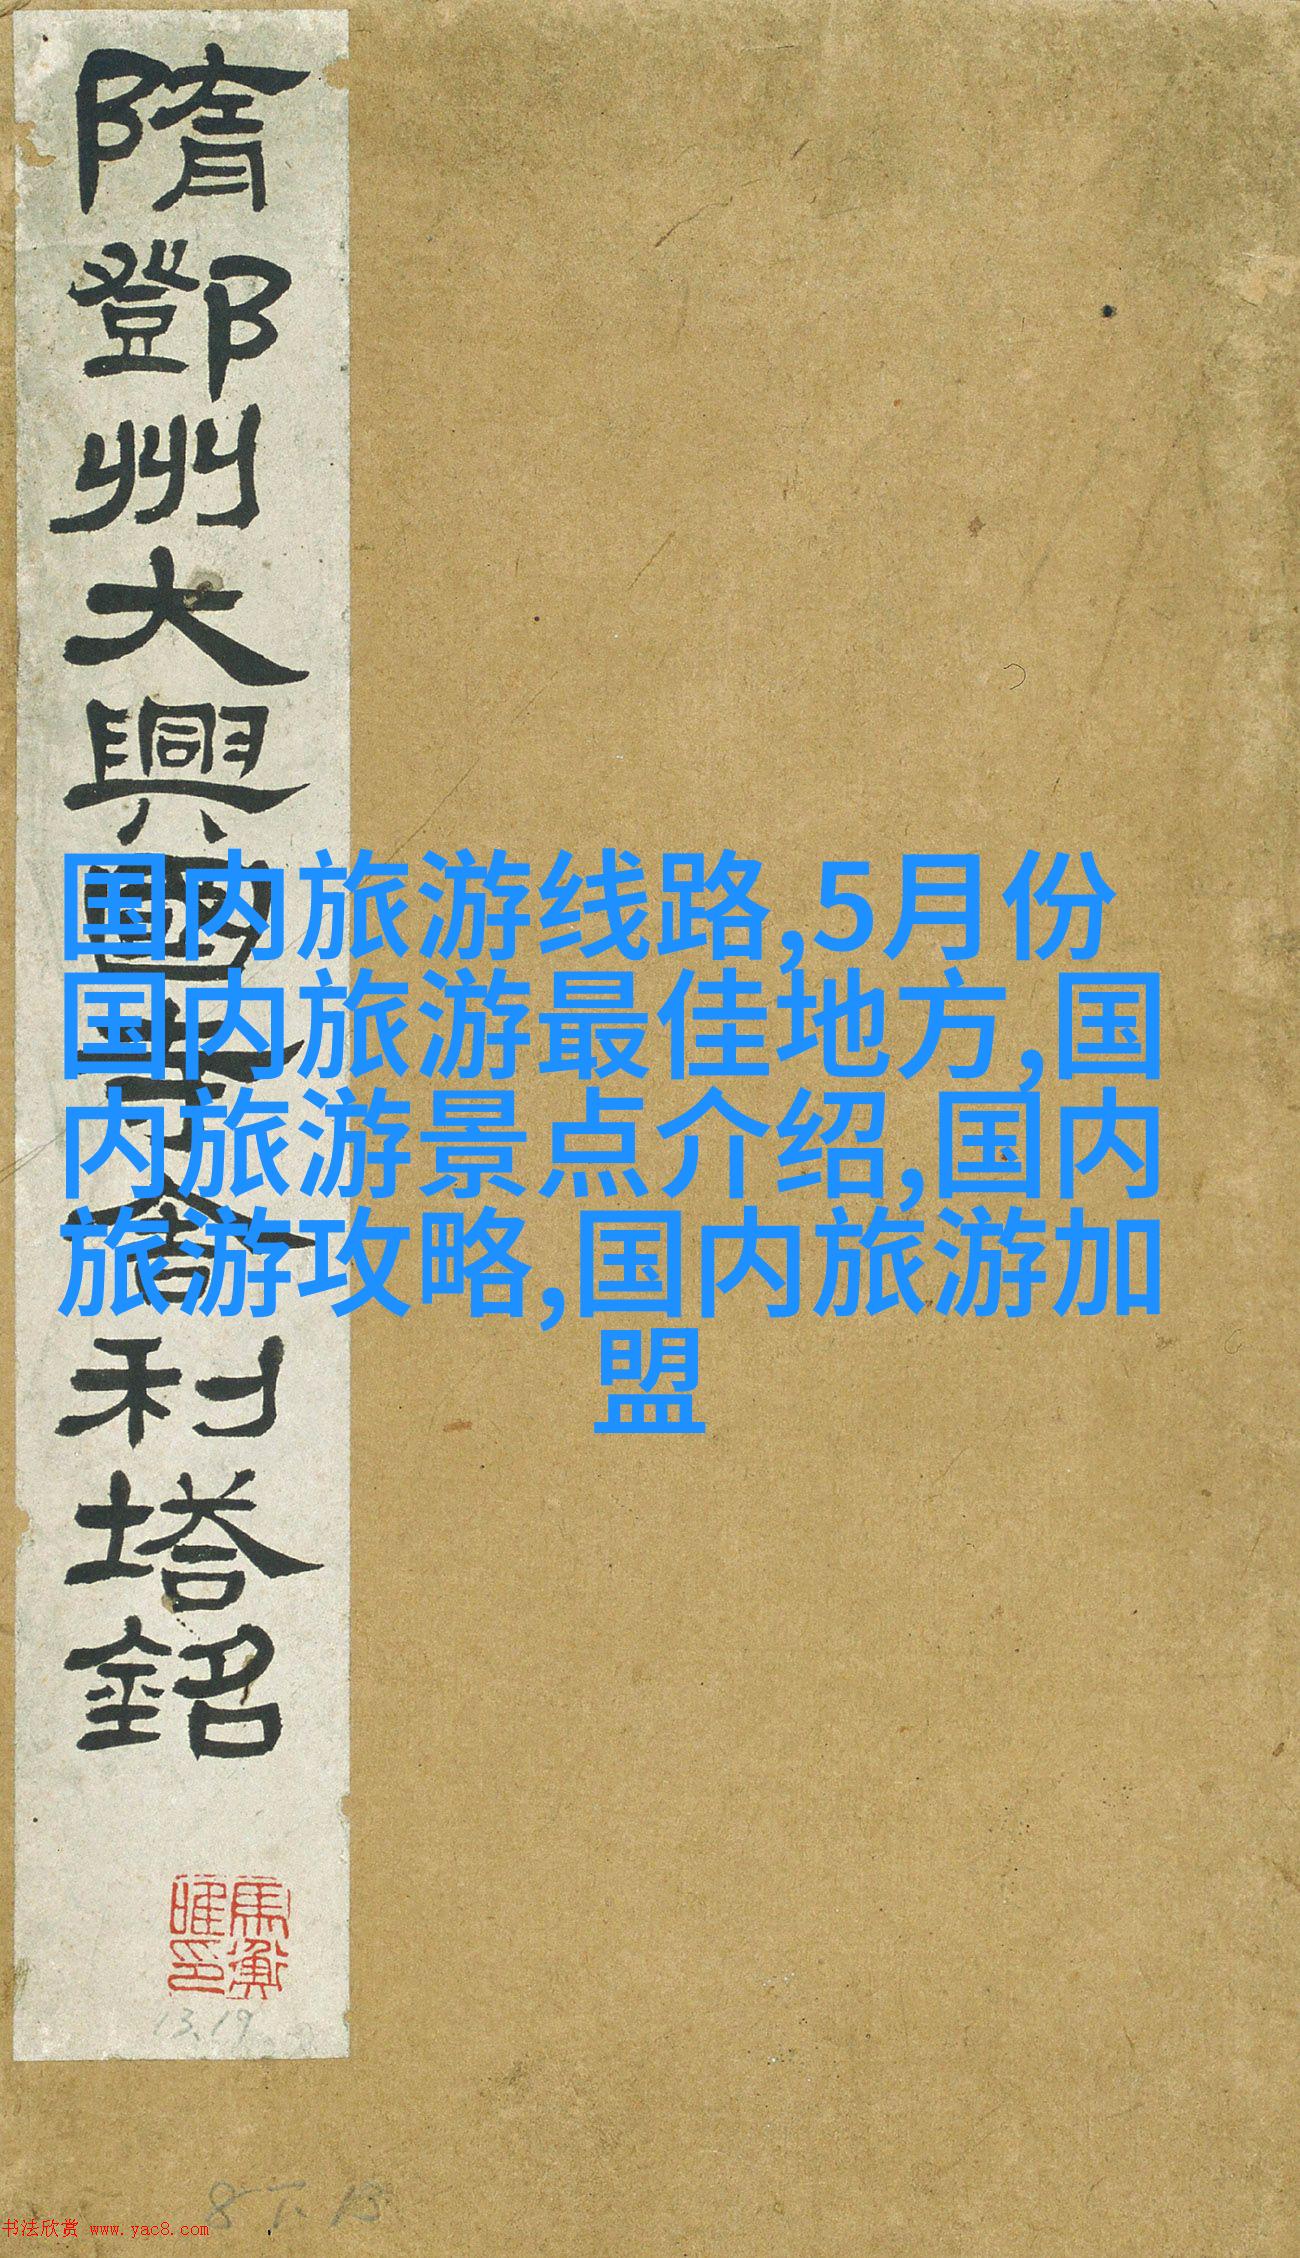 隋鄧州大興國寺舍利塔銘
国内旅游线路,5月份
国内旅游最佳地方,国
内旅游景点介绍,国内
旅游攻略,国内旅游加
盟
馬衡
唯印
13.19
8下13
书法欣赏 www.yac8.com